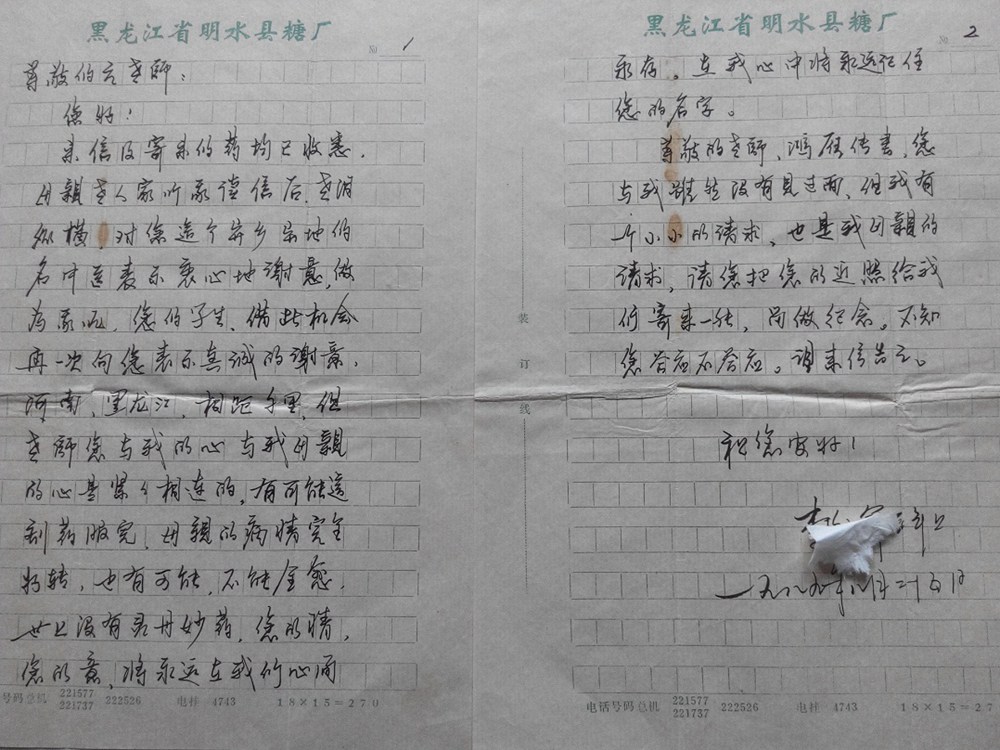 黑龙江省明水县糖厂
№ 1
尊敬的言老师：
您好！
来信及寄来的药均已收悉，
母亲老人家听我读信后，老泪
纵横，对您这个异乡异地的
名中医表示衷心地谢意，做
为我证，您的学生，借此机会
再一次向您表示真诚的谢意，
河南，黑龙江，相距千里，但
老师您与我的心与我母亲
的心是紧々相连的，有可能这
剂药服完，母亲的病情完全
好转，也有可能，不能全愈，
世上没有灵丹妙药，您的情，
您的意，将永远在我们心间
号码总机 221577 221737 222526 电挂 4743 18×15=270
装订线
黑龙江省明水县糖厂
№ 2
永存。在我心中将永远记住
您的名字。
尊敬的老师，鸿雁传书，您
与我虽然没有见过面，但我有
一个小小的请求，也是我母亲的
请求，请您把您的近照给我
们寄来一张，留做纪念。不知
您答应不答应。请来信告之。
祝您安好！
李
一九八九年八月二十五日
电话号码总机 221577 221737 222526 电挂 4743 18×15=27